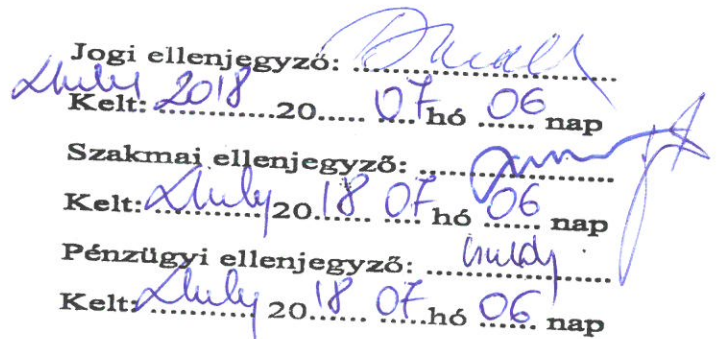 Jogi ellenjegyző: ....................
Kelt: 2018 20..... 07 hó 06 nap
Szakmai ellenjegyző: ....................
Kelt: 20 18 07 hó 06 nap
Pénzügyi ellenjegyző: ....................
Kelt: 20 18 07 hó 06 nap